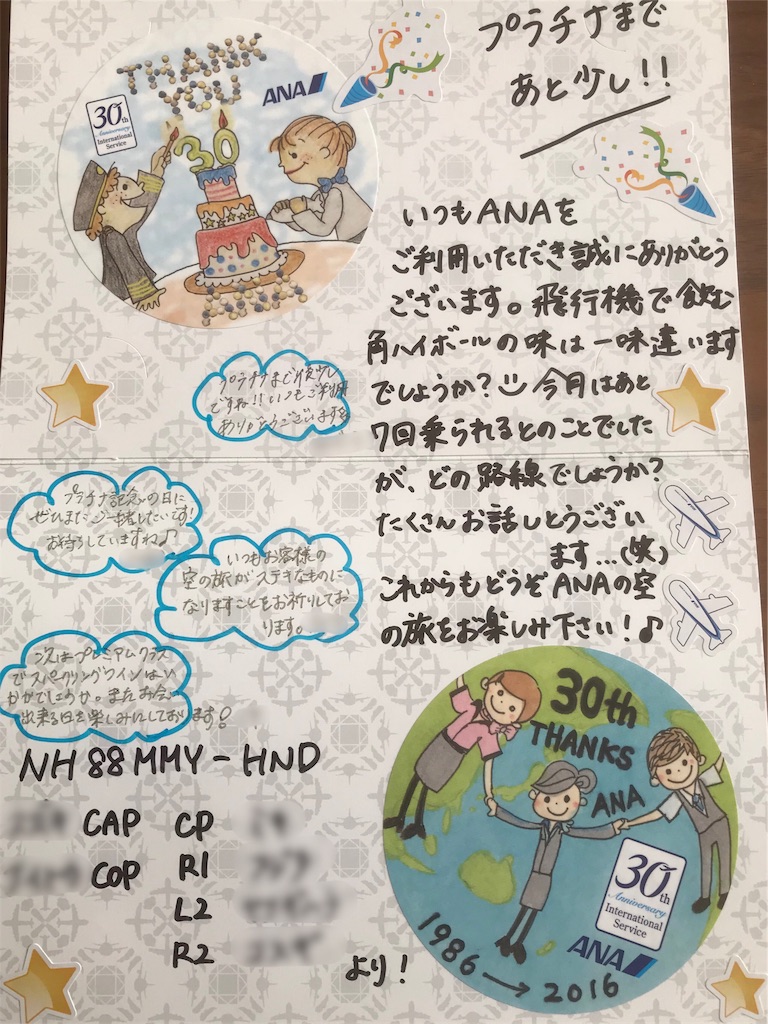 プラチナまで
あと少し!!
THANK
YOU
30th
Anniversary
International
Service
ANA
30
いつもANAを
ご利用いただき誠にありがとう
ございます。飛行機で飲む
角ハイボールの味は一味違います
でしょうか?
今月はあと
7回乗られるとのことでした
が、どの路線でしょうか?
たくさんお話しとうござい
ます…(笑)
これからもどうぞANAの空
の旅をお楽しみ下さい!♪
プラチナまで後少し
ですね!!いつもご利用
ありがとうございます
プラチナ記念の日に
ぜひまたご一緒したいです!
お待ちしていますね♪
いつもお客様の
空の旅がステキなものに
なりますことをお祈りしてお
ります。
次はプレミアムクラス
でスパークリングワインはい
かがでしょうか。またお会い
出来る日を楽しみにしております!
NH 88 MMY - HND
CAP
COP
CP
R1
L2
R2
より!
30th
THANKS
ANA
30th
Anniversary
International
Service
ANA
1986→2016